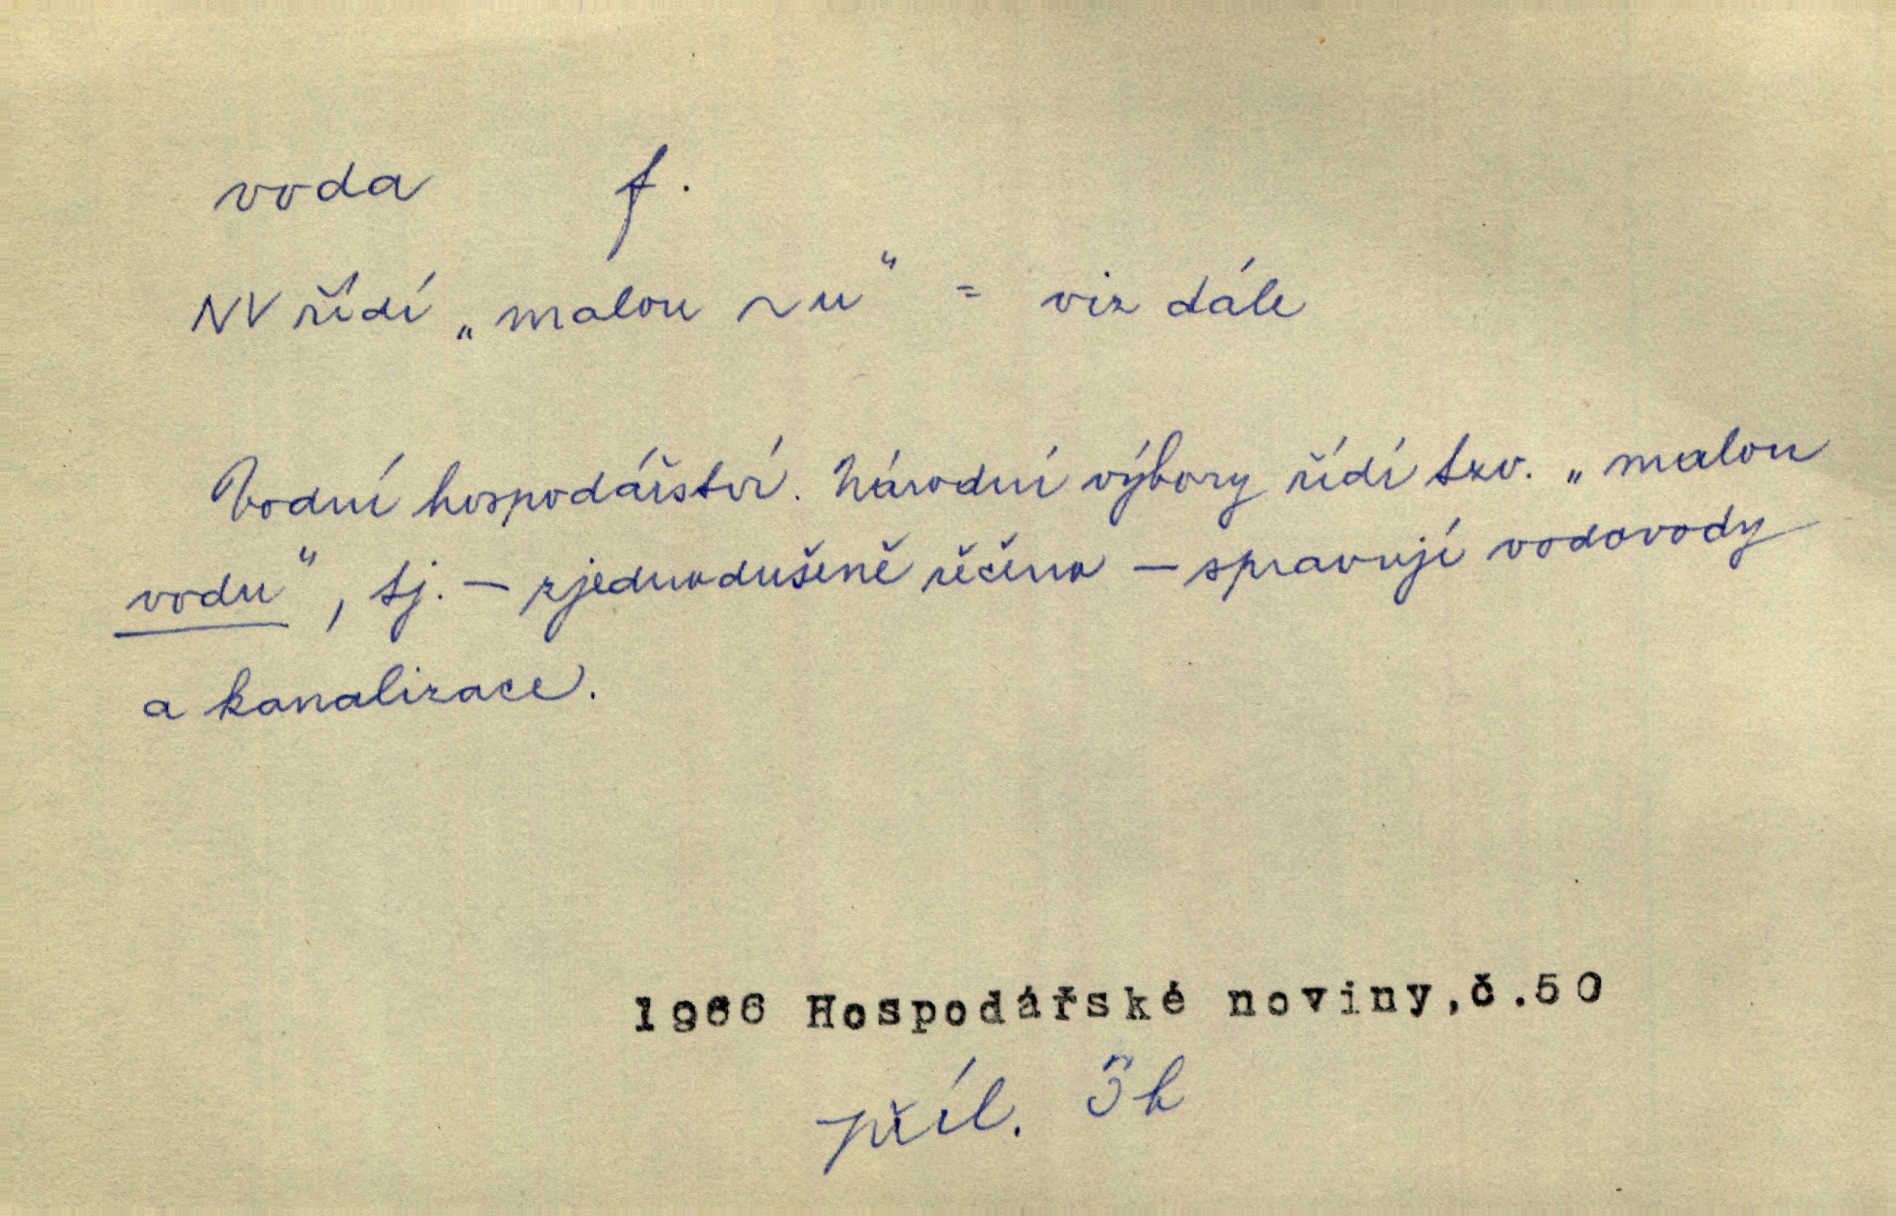 voda f.
NV řídí „malou ~u" = viz dále
Vodní hospodářství. Národní výbory řídí tzv. „malou
vodu", tj. – zjednodušeně řečeno – spravují vodovody
a kanalizace.
1966 Hospodářské noviny,č.50
příl.